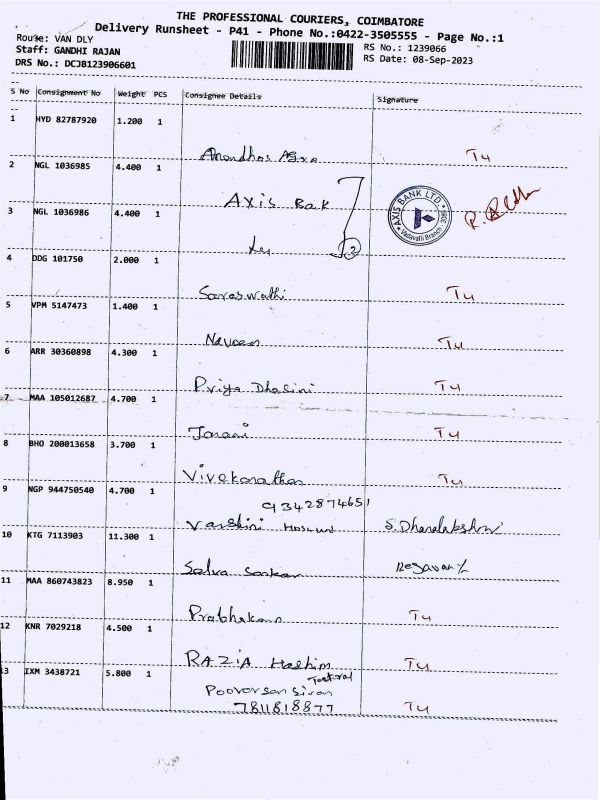 THE PROFESSIONAL COURIERS, COIMBATORE
Delivery Runsheet - P41 - Phone No.:0422-3505555 - Page No.:1
Route: VAN DLY
RS No.: 1239066
Staff: GANDHI RAJAN
RS Date: 08-Sep-2023
DRS No.: DCJB123906601
S No Consignment No Weight PCS Consignee Details Signature
1 HYD 82787920 1.200 1
T4
2 NGL 1036985 4.400 1
AXIS Bak
AXIS BANK LTD.
Vadavalli Branch
3 NGL 1036986 4.400 1
2
4 DDG 101750 2.000 1
Saraswathi T4
5 VPM 5147473 1.400 1
Naveen T4
6 ARR 30360898 4.300 1
Priya Dhasini T4
7 MAA 105012687 4.700 1
Janani T4
8 BHO 200013658 3.700 1
Vivekanathan T4
9 NGP 944750540 4.700 1
9342874651
Varshini S. Dhanalakshmi
10 KTG 7113903 11.300 1
Selva Sankar
11 MAA 860743823 8.950 1
Prabhakaran T4
12 KNR 7029218 4.500 1
RAZIA Hashim T4
13 IXM 3438721 5.800 1
7811818877 T4